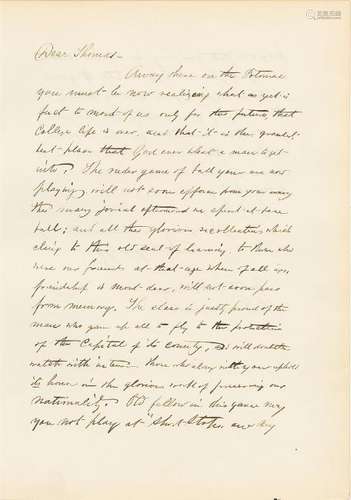 Dear Thomas -
Away there on the Potomac
you must be now realizing what as yet is
fact to most of us only for the future, that
College life is over, and that it is the greatest
best place that God ever what a man to get
into. The ruder game of ball you are now
playing, will not soon efface from your memory
the many jovial afternoons we spent at base
ball; and all the glorious recollections which
cling to this old seat of learning, to those who
were our friends at that age when of all
friendship is most dear, will not soon pass
from memory. The class is justly proud of the
man who gave up all to fly to the protection
of the Capital of its country, & will
watch with those who along with you uphold
its honor in the glorious work of preserving our
nationality. Old fellow in this game may
you not play at "Short Stop"